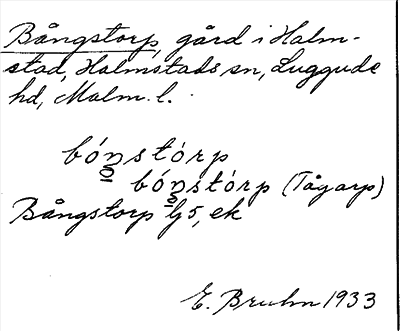 Bångstorp, gård i Halm-
stad, Halmstads sn, Luggude
hd, Malm. l.
bónstórp
bónstórp (Tågarp)
Bångstorp Ij 5, ek
E. Bruhn 1933